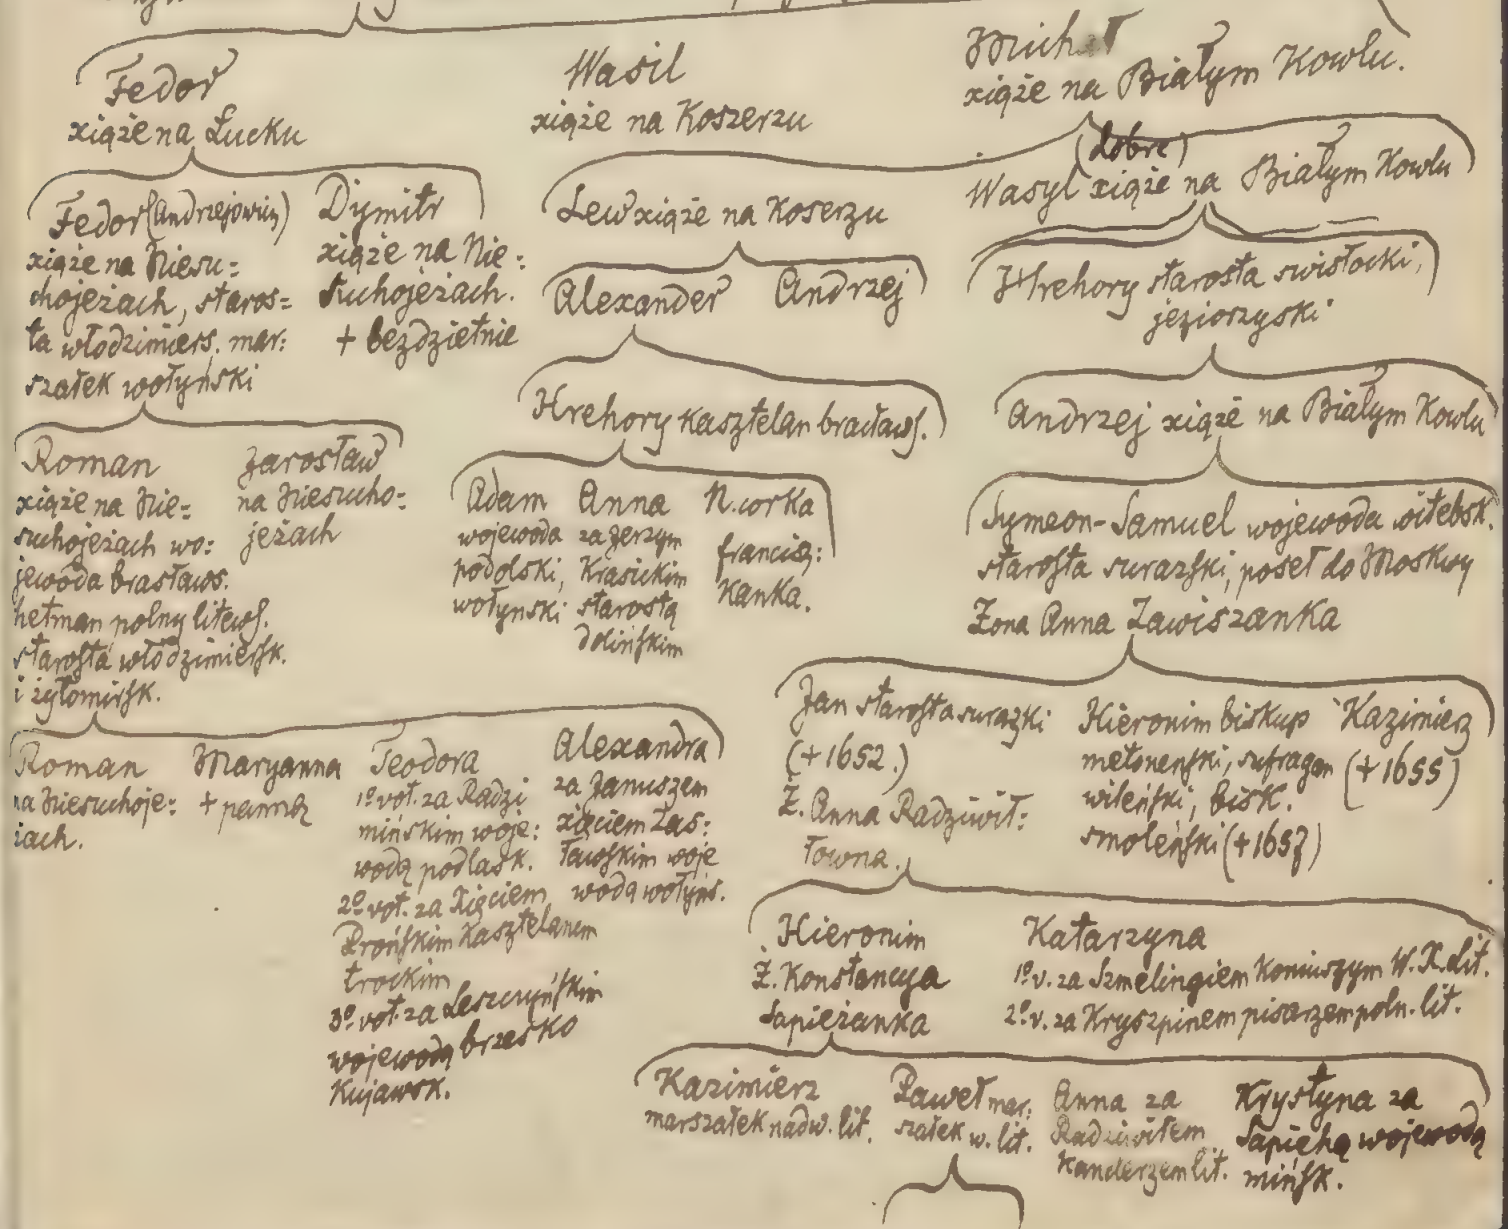 Fedor
xiąże na Łucku
Wasil
xiąże na Koszerzu
Michał
xiąże na Białym Kowlu.
Fedor (Andrzejowicz)
xiąże na Niesu=
chojeżach, staros=
ta włodzimiers. mar:
szałek wołyński
Dymitr
xiąże na Nie:
suchojeżach.
+ bezdzietnie
Lew xiąże na Koserzu
(dobre)
Wasyl xiąże na Białym Kowlu
Alexander
Andrzej
Hrehory starosta swisłocki,
jeziorzyski
Hrehory kasztelan bracławs.
Andrzej xiąże na Białym Kowlu
Roman
xiąże na Nie=
suchojeżach wo:
jewoda brasławs.
hetman polny litews.
starosta włodzimiersk.
i żytomirsk.
Jarosław
na Niesucho=
jeżach
Adam
wojewoda
podolski,
wołynski
Anna
za Jerzym
Krasickim
starostą
dolińskim
N. corka
francisz:
kanka.
Symeon-Samuel wojewoda witebsk.
starosta surazski, poseł do Moskwy
Żona Anna Zawiszanka
Roman
na Niesuchoje:
żach.
Maryanna
+ panną
Teodora
1º vot. za Radzi
mińskim woje:
wodą podlask.
2º vot. za Xięciem
Prońskim Kasztelanem
trockim
3º vot. za Leszczyńskim
wojewodą brzesko
Kujawsk.
Alexandra
za Januszem
xięciem Zas:
ławskim woje
wodą wołyńs.
Jan starosta surazki
(+ 1652.)
Ż. Anna Radziwił:
łowna.
Hieronim biskup
metonenski, sufragan
wileński, bisk.
smoleński (+ 1657)
Kazimierz
(+ 1655)
Hieronim
Ż. Konstancya
Sapieżanka
Katarzyna
1º. v. za Szmelingiem Koniuszym W. X. lit.
2º. v. za Kryszpinem pisarzem poln. lit.
Kazimierz
marszałek nadw. lit.
Paweł mar:
szałek w. lit.
Anna za
Radziwiłem
kanclerzem lit.
Krystyna za
Sapiehą wojewodą
mińsk.